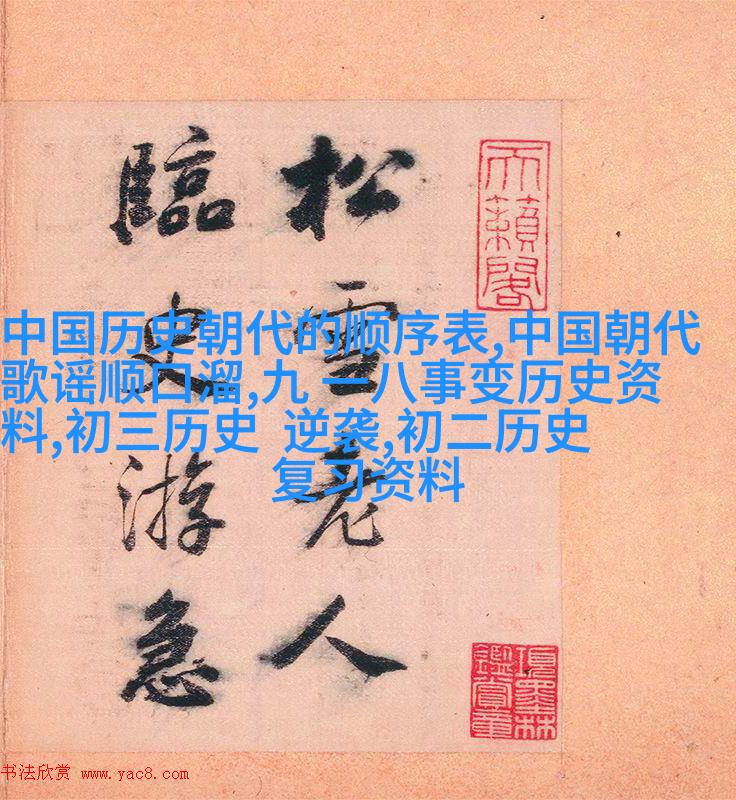 松雪老人
臨史游急
天籟閣
項墨林
鑑賞章
中国历史朝代的顺序表,中国朝代
歌谣顺口溜,九 一八事变历史资
料,初三历史 逆袭,初二历史
复习资料
书法欣赏 www.yac8.com